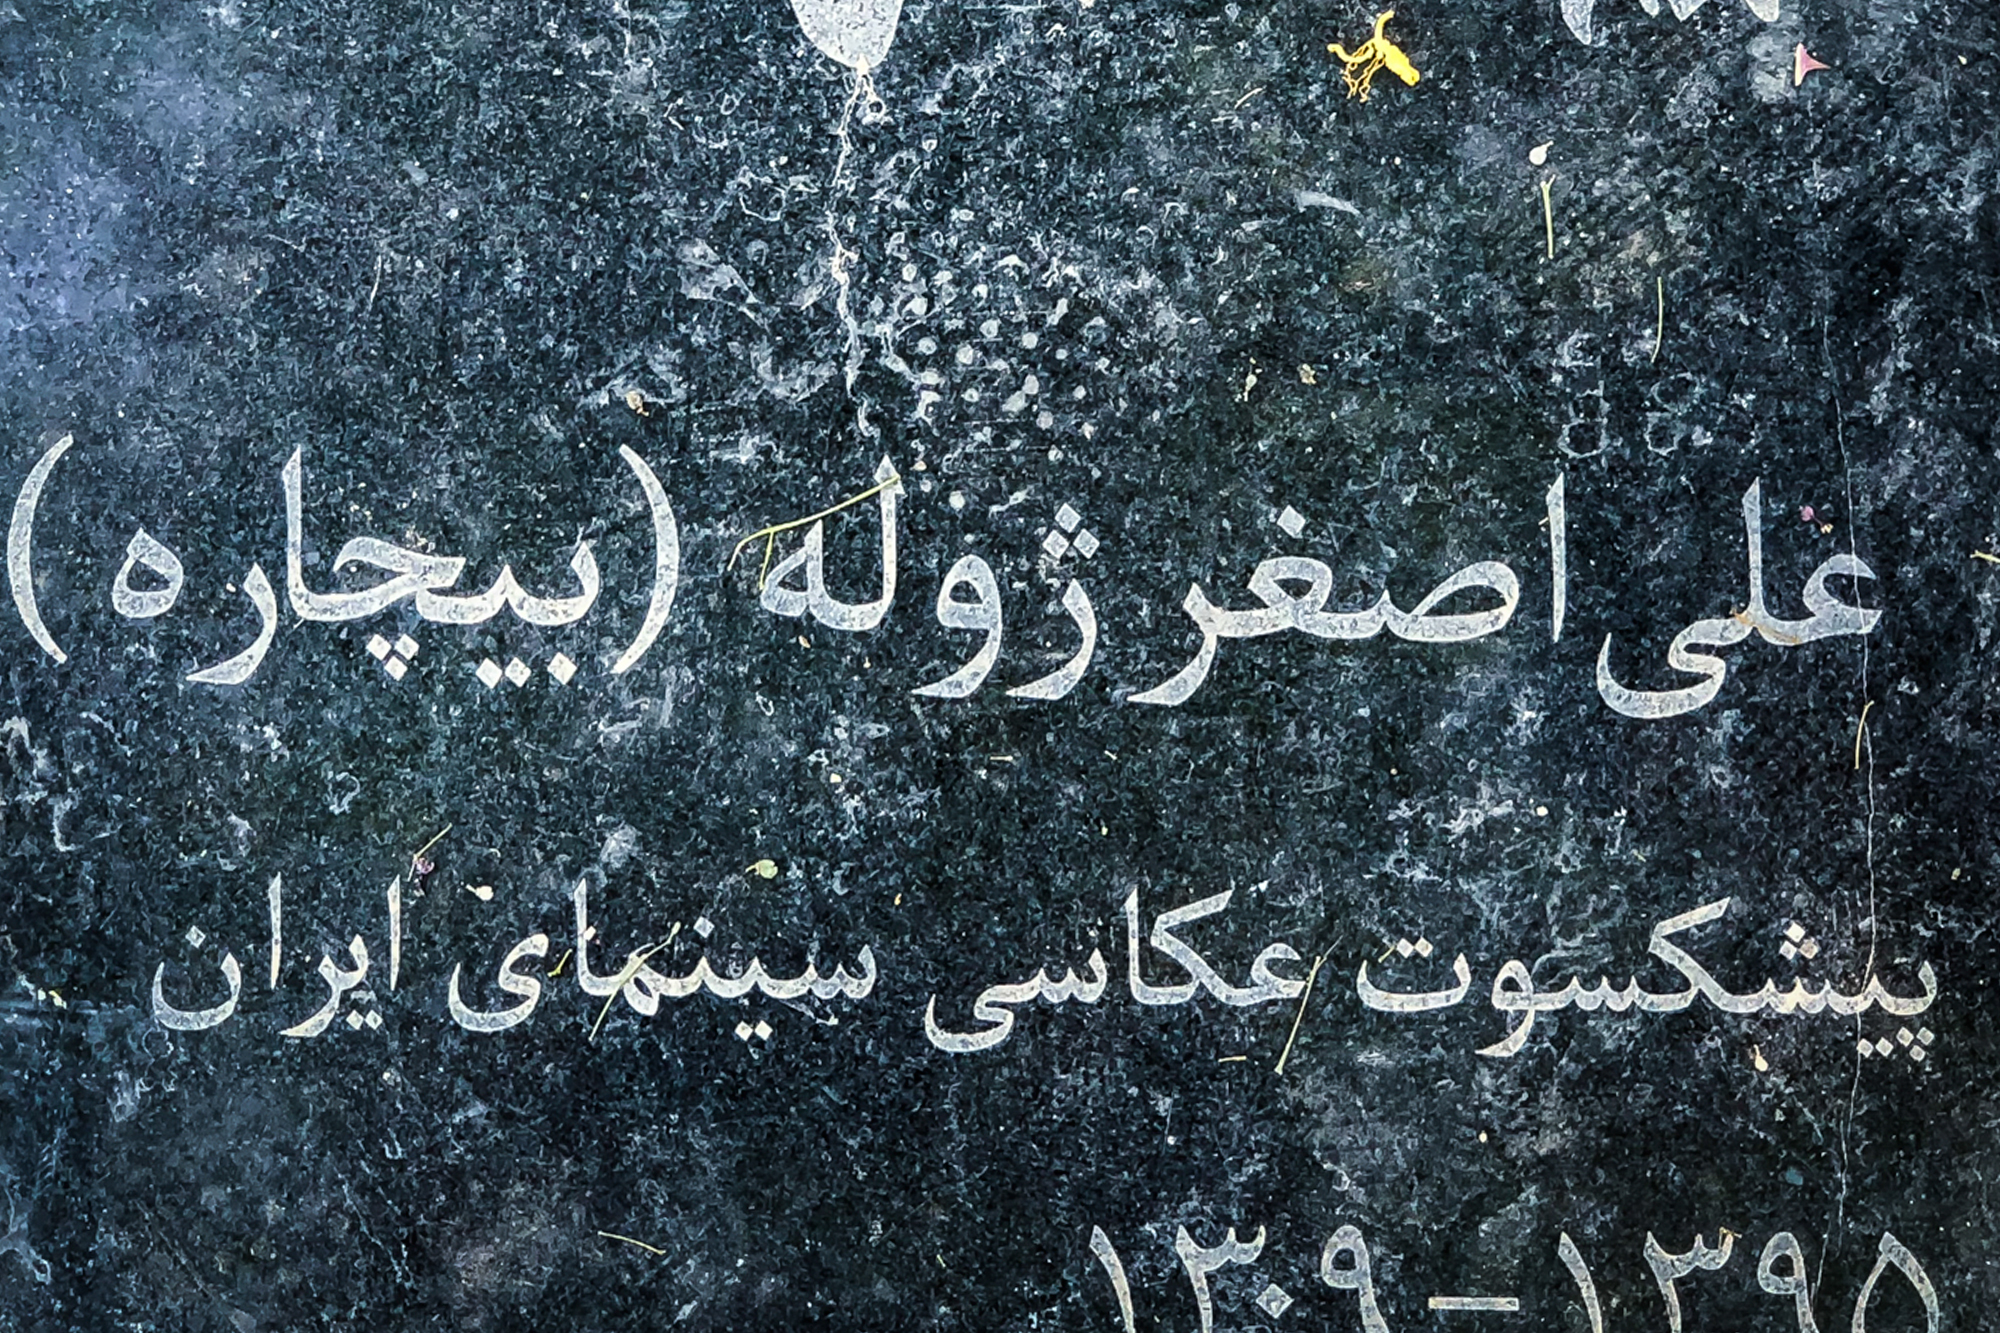 علی اصغر ژوله (بیچاره)
پیشکسوت عکاسی سینمای ایران
۱۳۰۹ – ۱۳۹۵